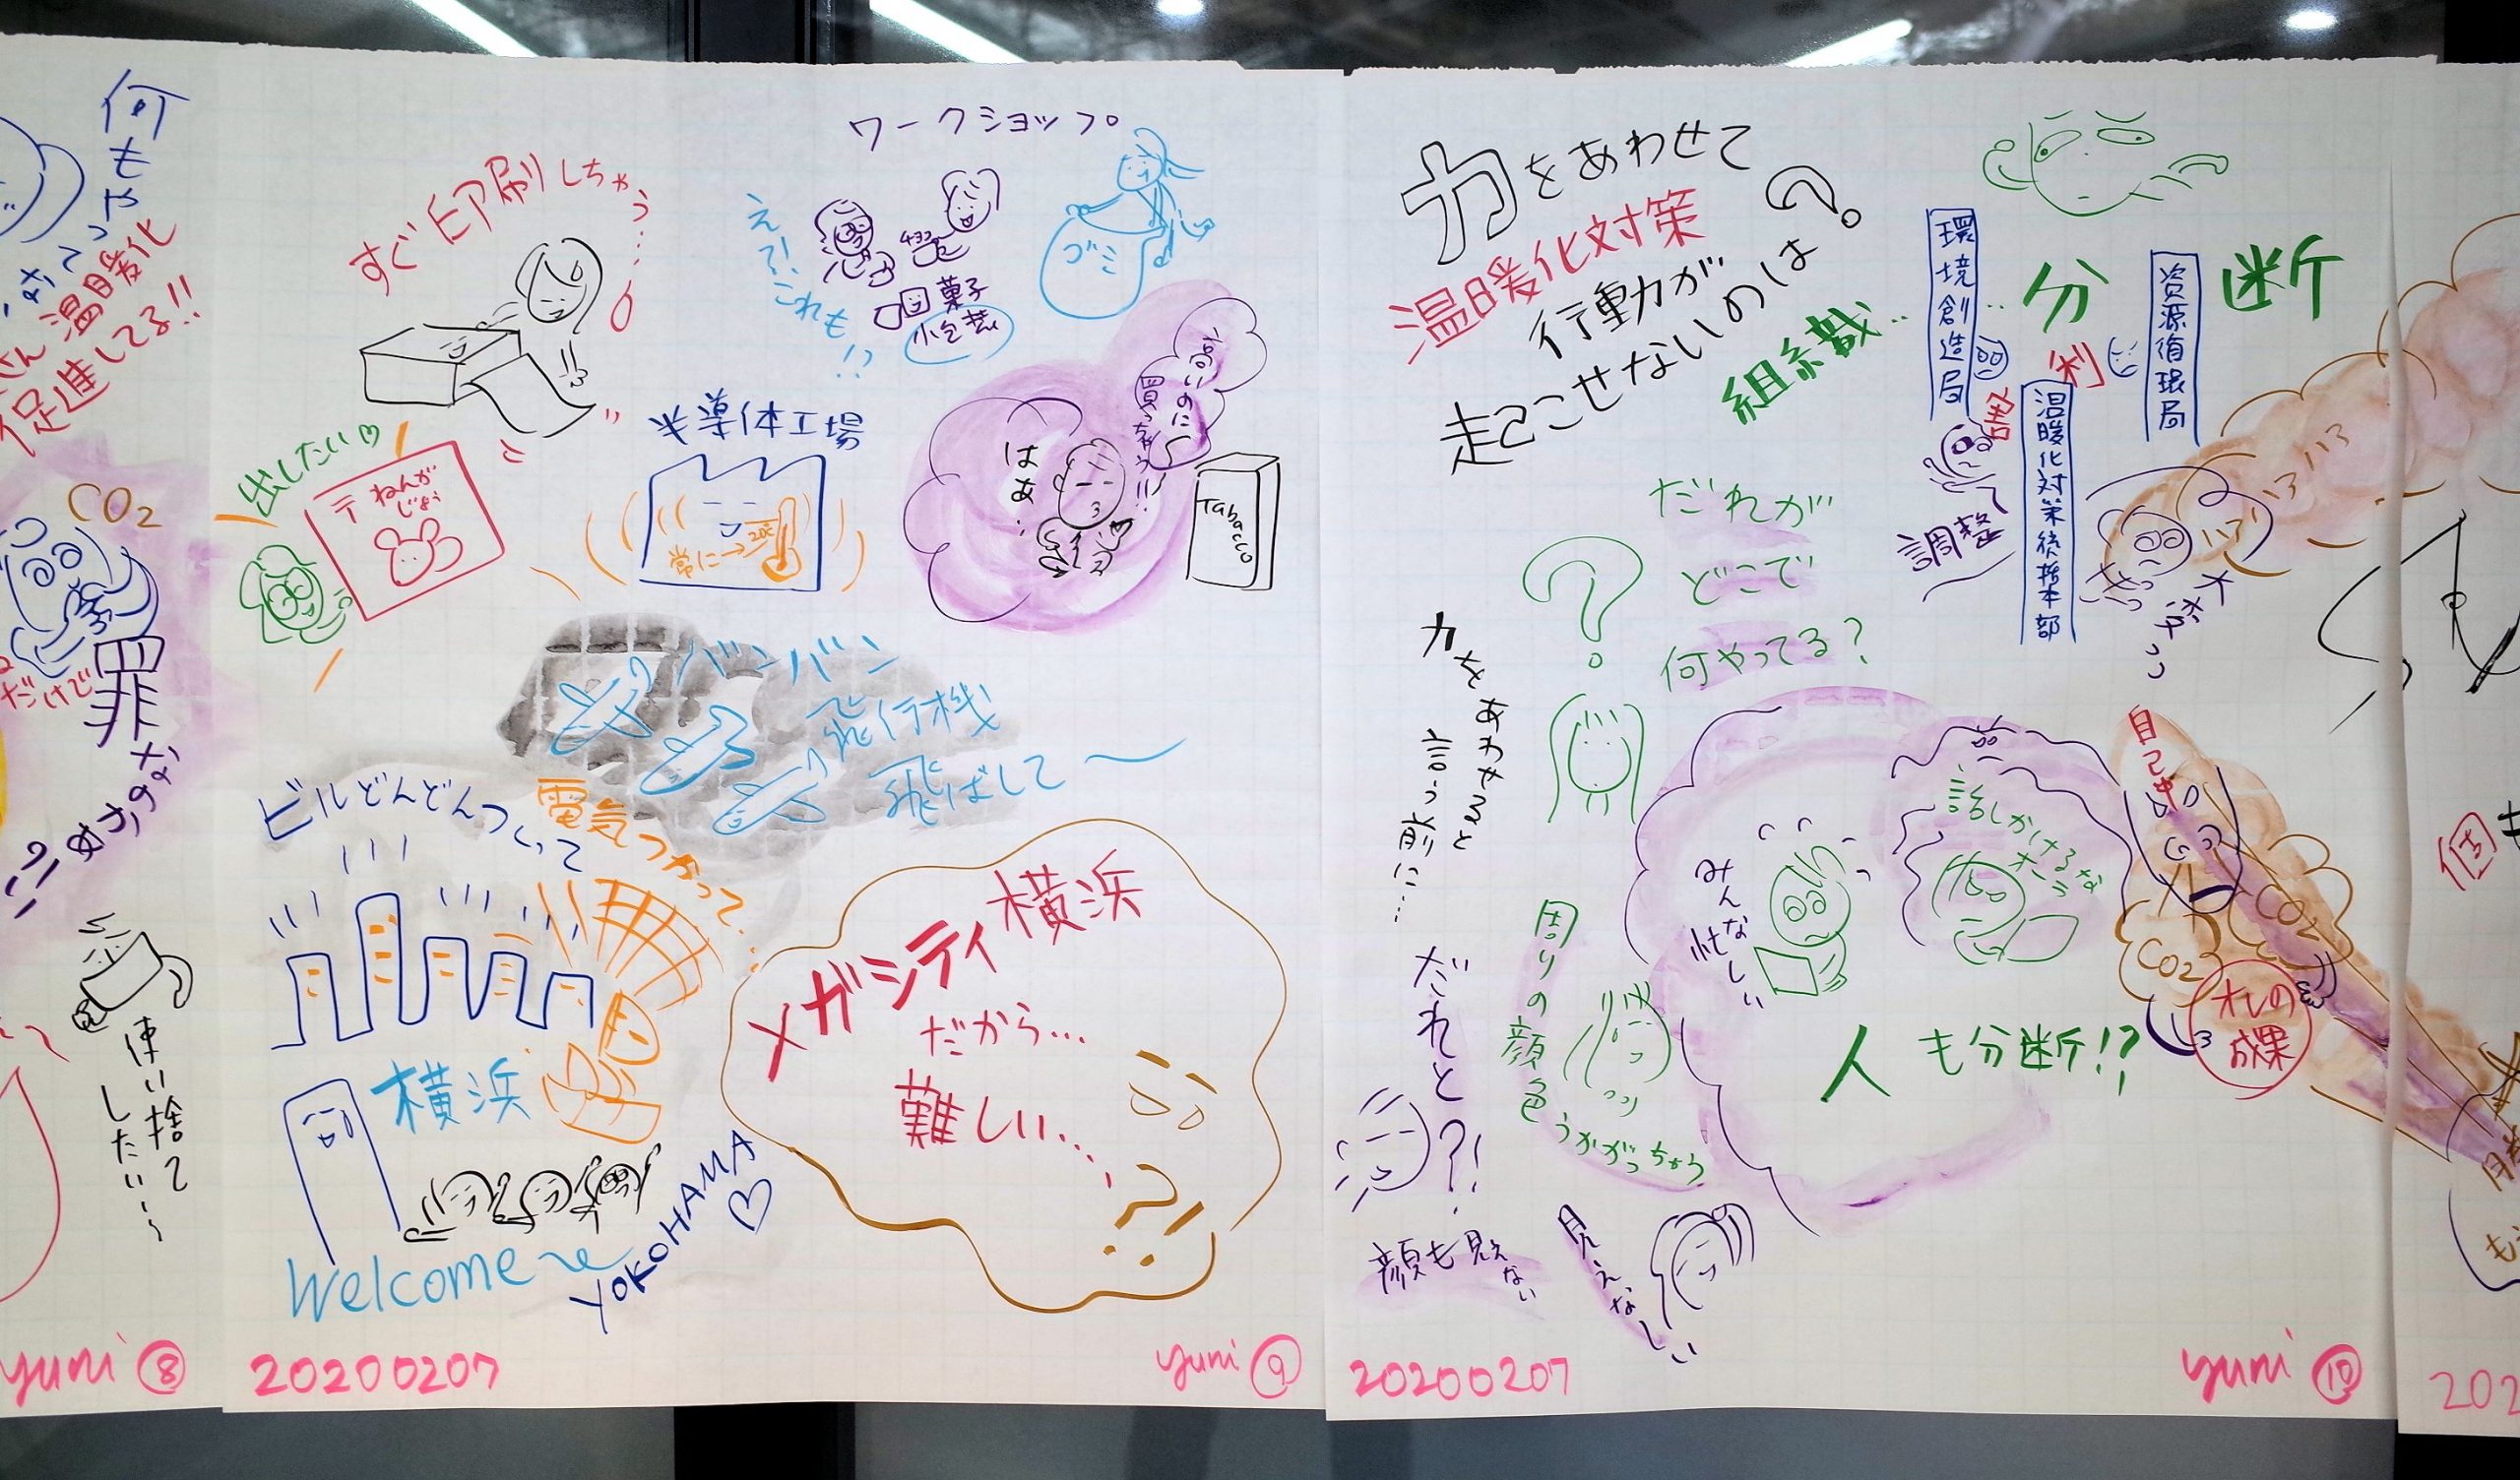 何もや
なってっ
温暖化
促進してる!!
CO2
だけで
罪
なのかぁ
使い捨て
したい〜
yuni ⑧
ワークショップ。
すぐ印刷しちゃう…。
え?!これも!?
菓子
小包装
ゴミ
出したい♡
〒ねんが
じょう
半導体工場
常に→20℃
高いのに
買っちゃう!!
はぁ…
Tabacco
バンバン
飛行機
飛ばして〜
ビルどんどんつくって
電気つかって…
メガシティ横浜
だから…
難しい…?
横浜
Welcome〜
YOKOHAMA♡
20200207
yuni ⑨
力をあわせて
温暖化対策
行動が
起こせないのは?
組織…
分断
環境創造局
資源循環局
温暖化対策統括本部
利
害
調整
大変っっ
ハァ ハァ
だれが
どこで
何やってる?
?
力をあわせると
言う前に…
だれと?!
顔も見えない
見えなしい
周りの顔色うかがっちゃう
みんな忙しい
話しかけるな
オーラ
人も分断!?
CO2
CO2
オレの
成果
個
20200207
yuni ⑩
202